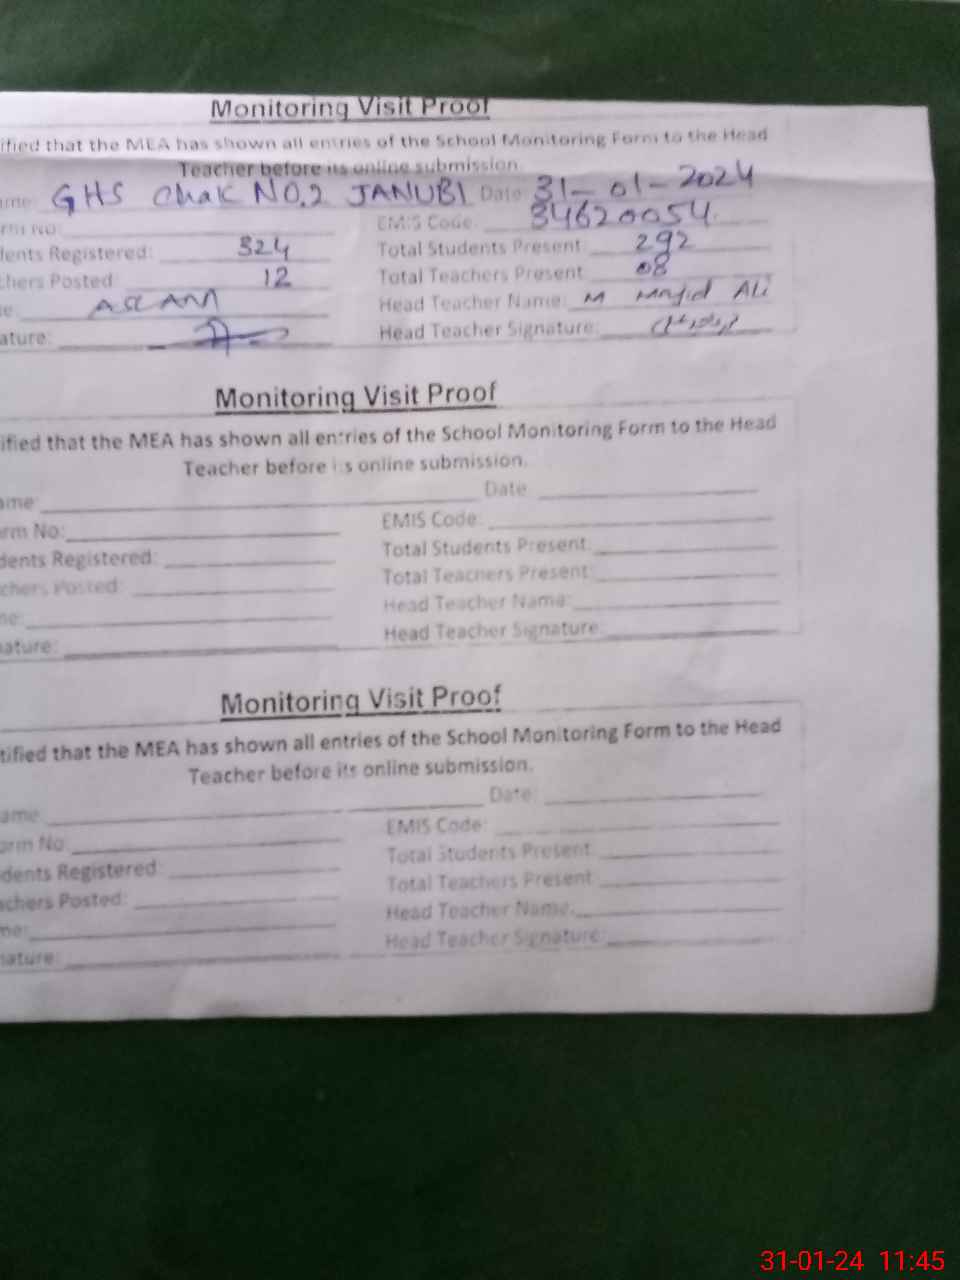 Monitoring Visit Proof
ified that the MEA has shown all entries of the School Monitoring Form to the Head
Teacher before its online submission.
ame: GHS Chak NO.2 JANUBI Date: 31-01-2024
rm No: EMIS Code: 34620054
dents Registered: 324 Total Students Present: 292
chers Posted: 12 Total Teachers Present: 08
e: ASLAM Head Teacher Name: M Majid Ali
ature: Head Teacher Signature:
Monitoring Visit Proof
ified that the MEA has shown all entries of the School Monitoring Form to the Head
Teacher before its online submission.
ame: Date:
orm No: EMIS Code:
dents Registered: Total Students Present:
chers Posted: Total Teachers Present:
me: Head Teacher Name:
nature: Head Teacher Signature:
Monitoring Visit Proof
tified that the MEA has shown all entries of the School Monitoring Form to the Head
Teacher before its online submission.
ame: Date:
orm No: EMIS Code:
dents Registered: Total Students Present:
achers Posted: Total Teachers Present:
me: Head Teacher Name:
nature: Head Teacher Signature:
31-01-24 11:45